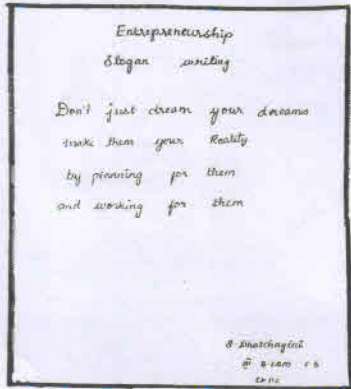 Entrepreneurship
Slogan writing
Don't just dream your dreams
make them your Reality
by planning for them
and working for them
III B.com C S